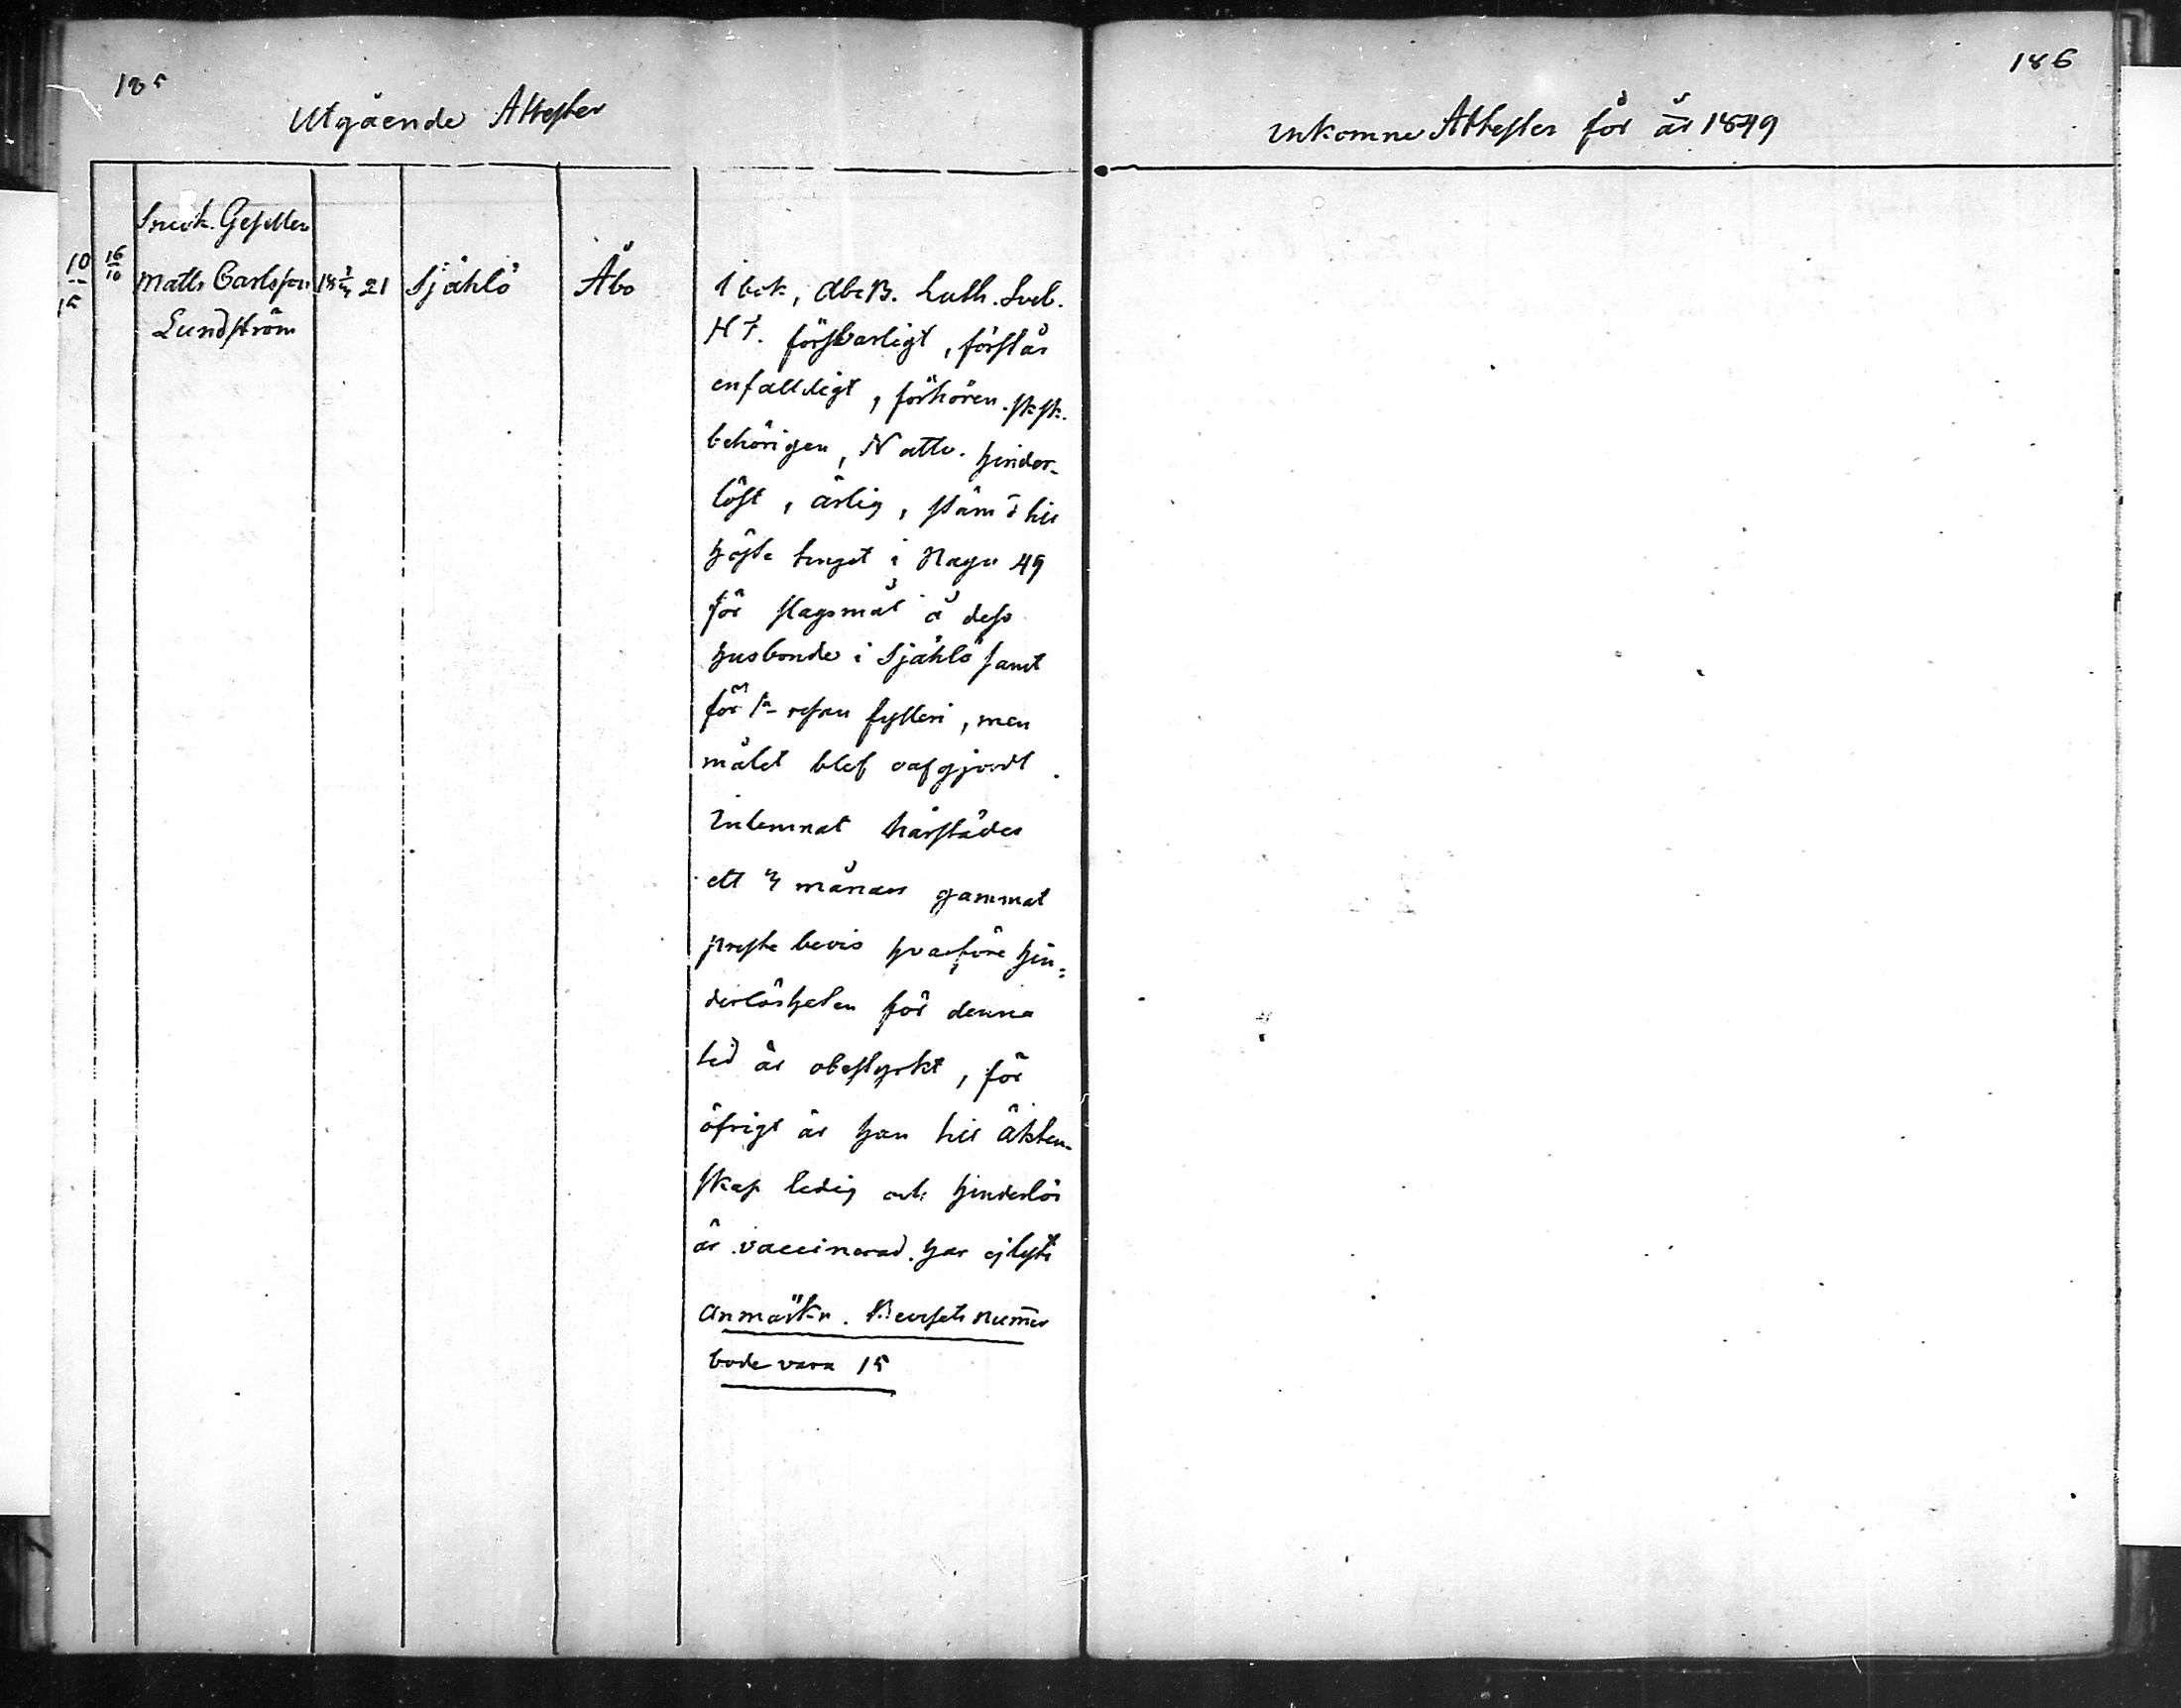 185
Utgående Attester
186
Inkomne Attester för år 1849
Snick. Gesellen
10 16/10 Matts Carlsson 18 2/4 21 Sjählö Åbo I bok, Abc B. Luth. Sveb.
15
Lundström
H T. försvarligt, förstår
enfaldigt, förhören sksk.
behörigen, N attv. hinder-
löst, ärlig, stämd till
höste tinget i Nagu 49
för slagsmål å dess
husbonde i Sjählö samt
för 1a resan fylleri, men
målet blef oafgjordt.
Inlemnat härstädes
ett 4 månar gammalt
preste bevis hvarföre hin=
derlösheten för denna
tid är obestyrkt, för
öfrigt är han till äkten-
skap ledig och hinderlös
är vaccinerad. har ej lyst
Anmärkn. Beviset Numer
bode vara 15